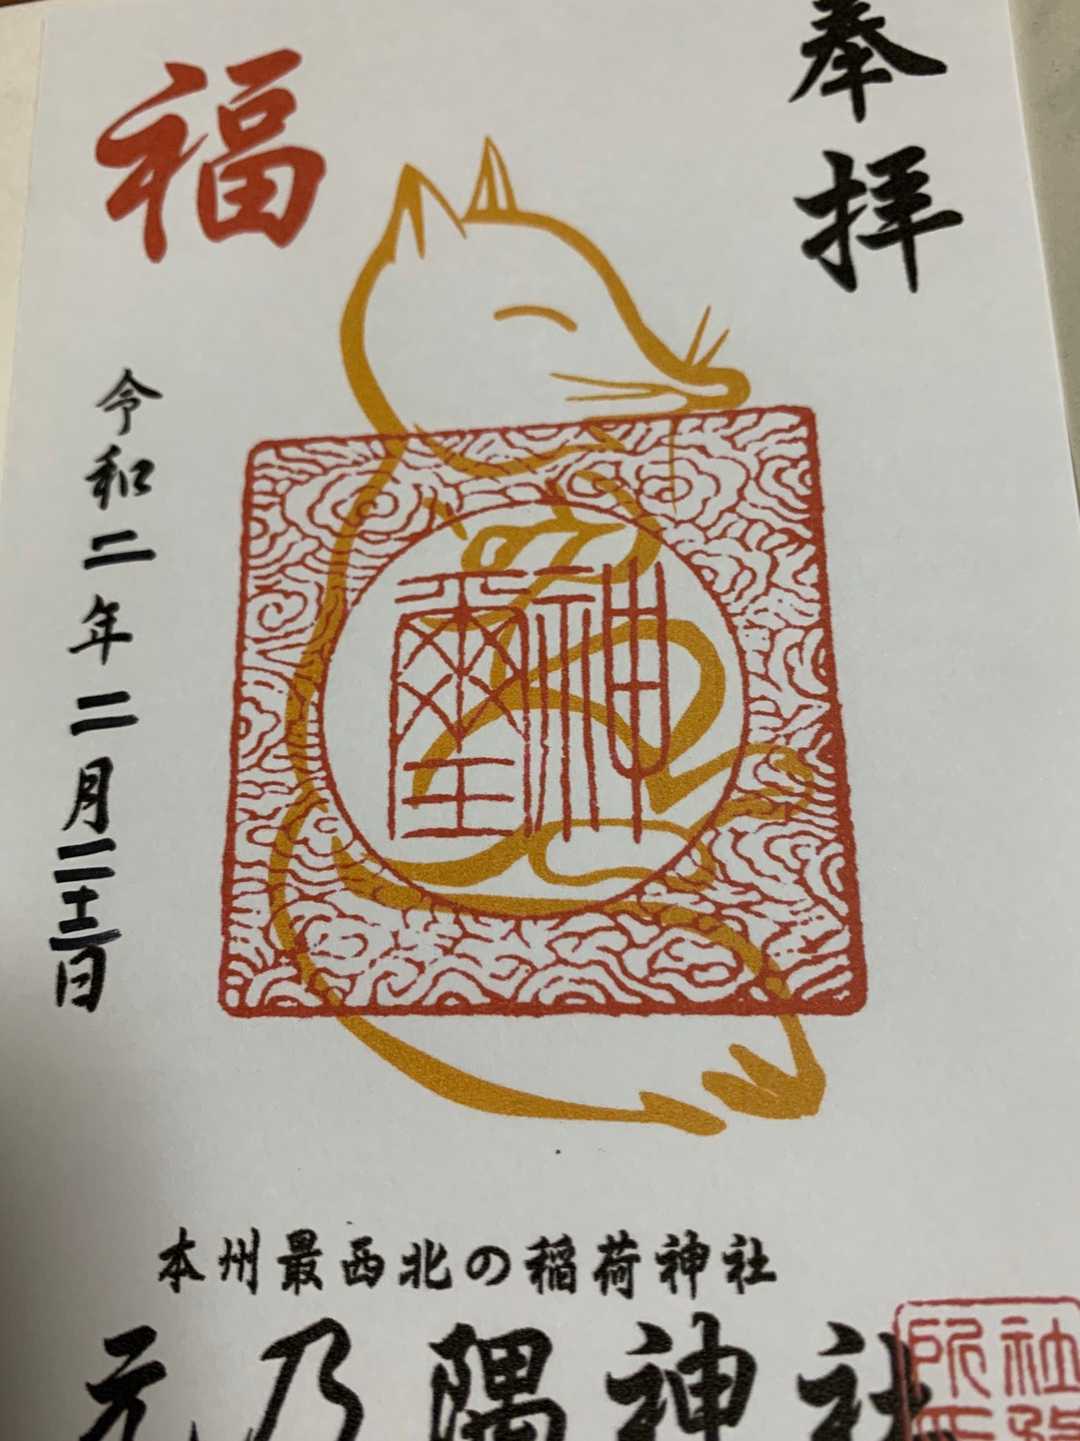 奉拝
福
神璽
令和二年二月二十三日
本州最西北の稲荷神社
元乃隅神社